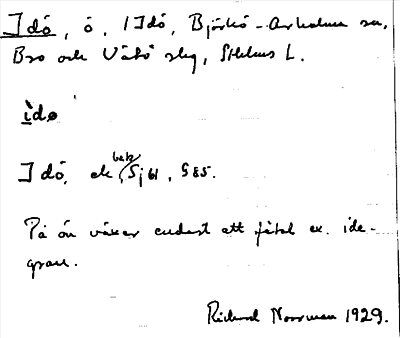 Idö, ö, 1 Idö, Björkö-Arholma sn,
Bro och Vätö slg, Sthlms L.
ìdø
Idö, ek (bet) Sj 61, S 85.
På ön växer endast ett fåtal ex. ide-
gran.
Richard Norrman 1929.